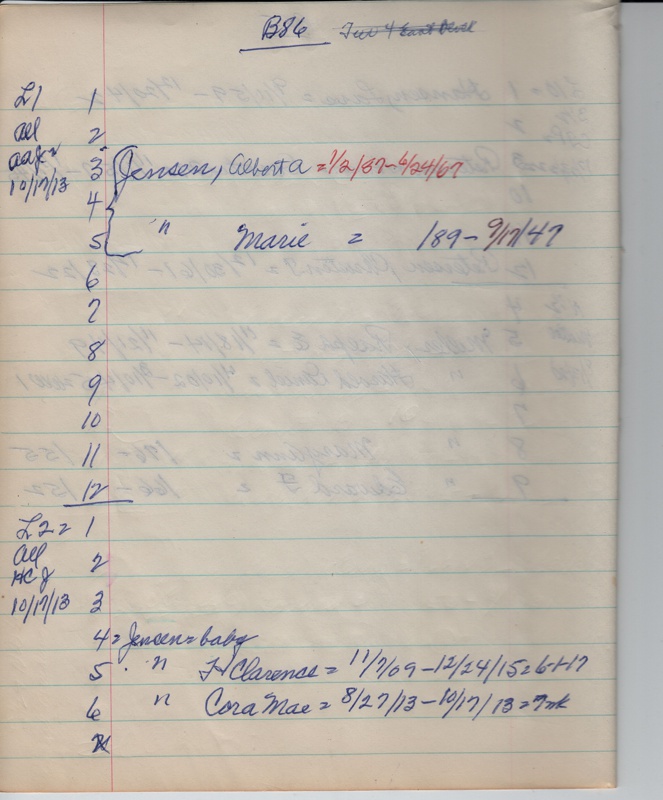 B86
L1 1
All 2
3 Jensen, Alberta = 1/2/37-6/24/67
10/17/13
4
5 " Marie = /89- 9/17/47
6
7
8
9
10
11
12
L2 = 1
All 2
HCJ
10/17/13 3
4 = Jensen = baby
5 " Clarence = 11/7/09-12/24/15=6+17
6 " Cora Mae = 8/27/13-10/17/13=7wk